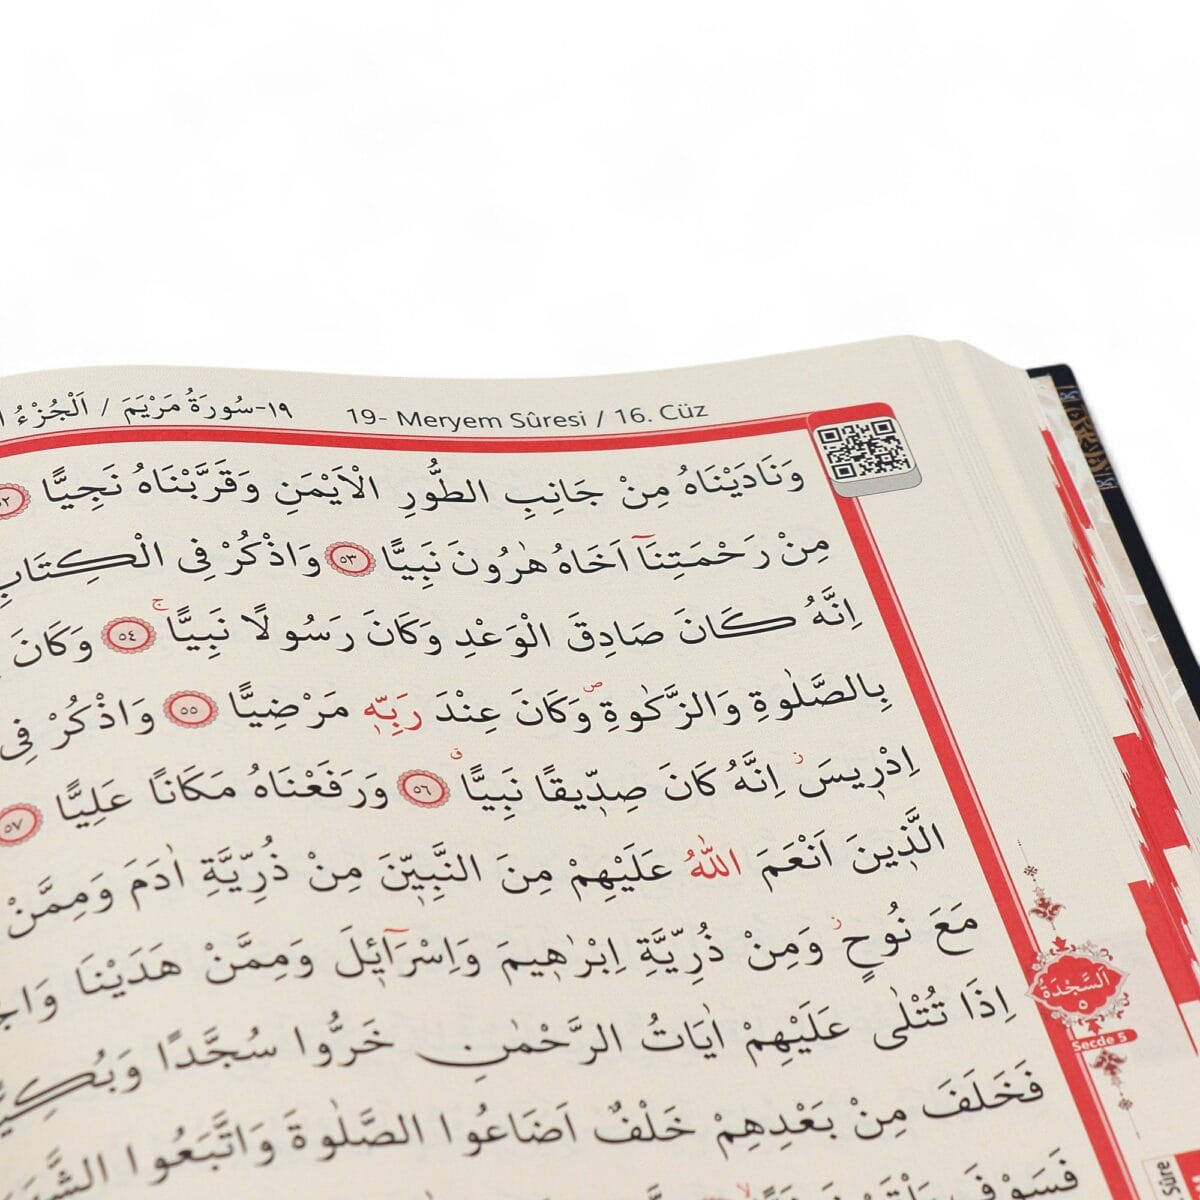 ١٩-سُورَةُ مَرْيَمَ / اَلْجُزْءُ
19- Meryem Sûresi / 16. Cüz
وَنَادَيْنَاهُ مِنْ جَانِبِ الطُّورِ الْاَيْمَنِ وَقَرَّبْنَاهُ نَجِيًّا ٥٢
مِنْ رَحْمَتِنَٓا اَخَاهُ هٰرُونَ نَبِيًّا ٥٣ وَاذْكُرْ فِي الْكِتَابِ
اِنَّهُ كَانَ صَادِقَ الْوَعْدِ وَكَانَ رَسُولًا نَبِيًّاۚ ٥٤ وَكَانَ
بِالصَّلٰوةِ وَالزَّكٰوةِۖ وَكَانَ عِنْدَ رَبِّه۪ مَرْضِيًّا ٥٥ وَاذْكُرْ فِي
اِدْر۪يسَۘ اِنَّهُ كَانَ صِدّ۪يقًا نَبِيًّاۗ ٥٦ وَرَفَعْنَاهُ مَكَانًا عَلِيًّا ٥٧
الَّذ۪ينَ اَنْعَمَ اللّٰهُ عَلَيْهِمْ مِنَ النَّبِيّ۪نَ مِنْ ذُرِّيَّةِ اٰدَمَ وَمِمَّنْ
مَعَ نُوحٍۘ وَمِنْ ذُرِّيَّةِ اِبْرٰه۪يمَ وَاِسْرَٓائ۪لَ وَمِمَّنْ هَدَيْنَا
اِذَا تُتْلٰى عَلَيْهِمْ اٰيَاتُ الرَّحْمٰنِ خَرُّوا سُجَّدًا
فَخَلَفَ مِنْ بَعْدِهِمْ خَلْفٌ اَضَاعُوا الصَّلٰوةَ وَاتَّبَعُوا
فَسَوْفَ
اَلسَّجْدَةُ
٥
Secde 5
Sûre